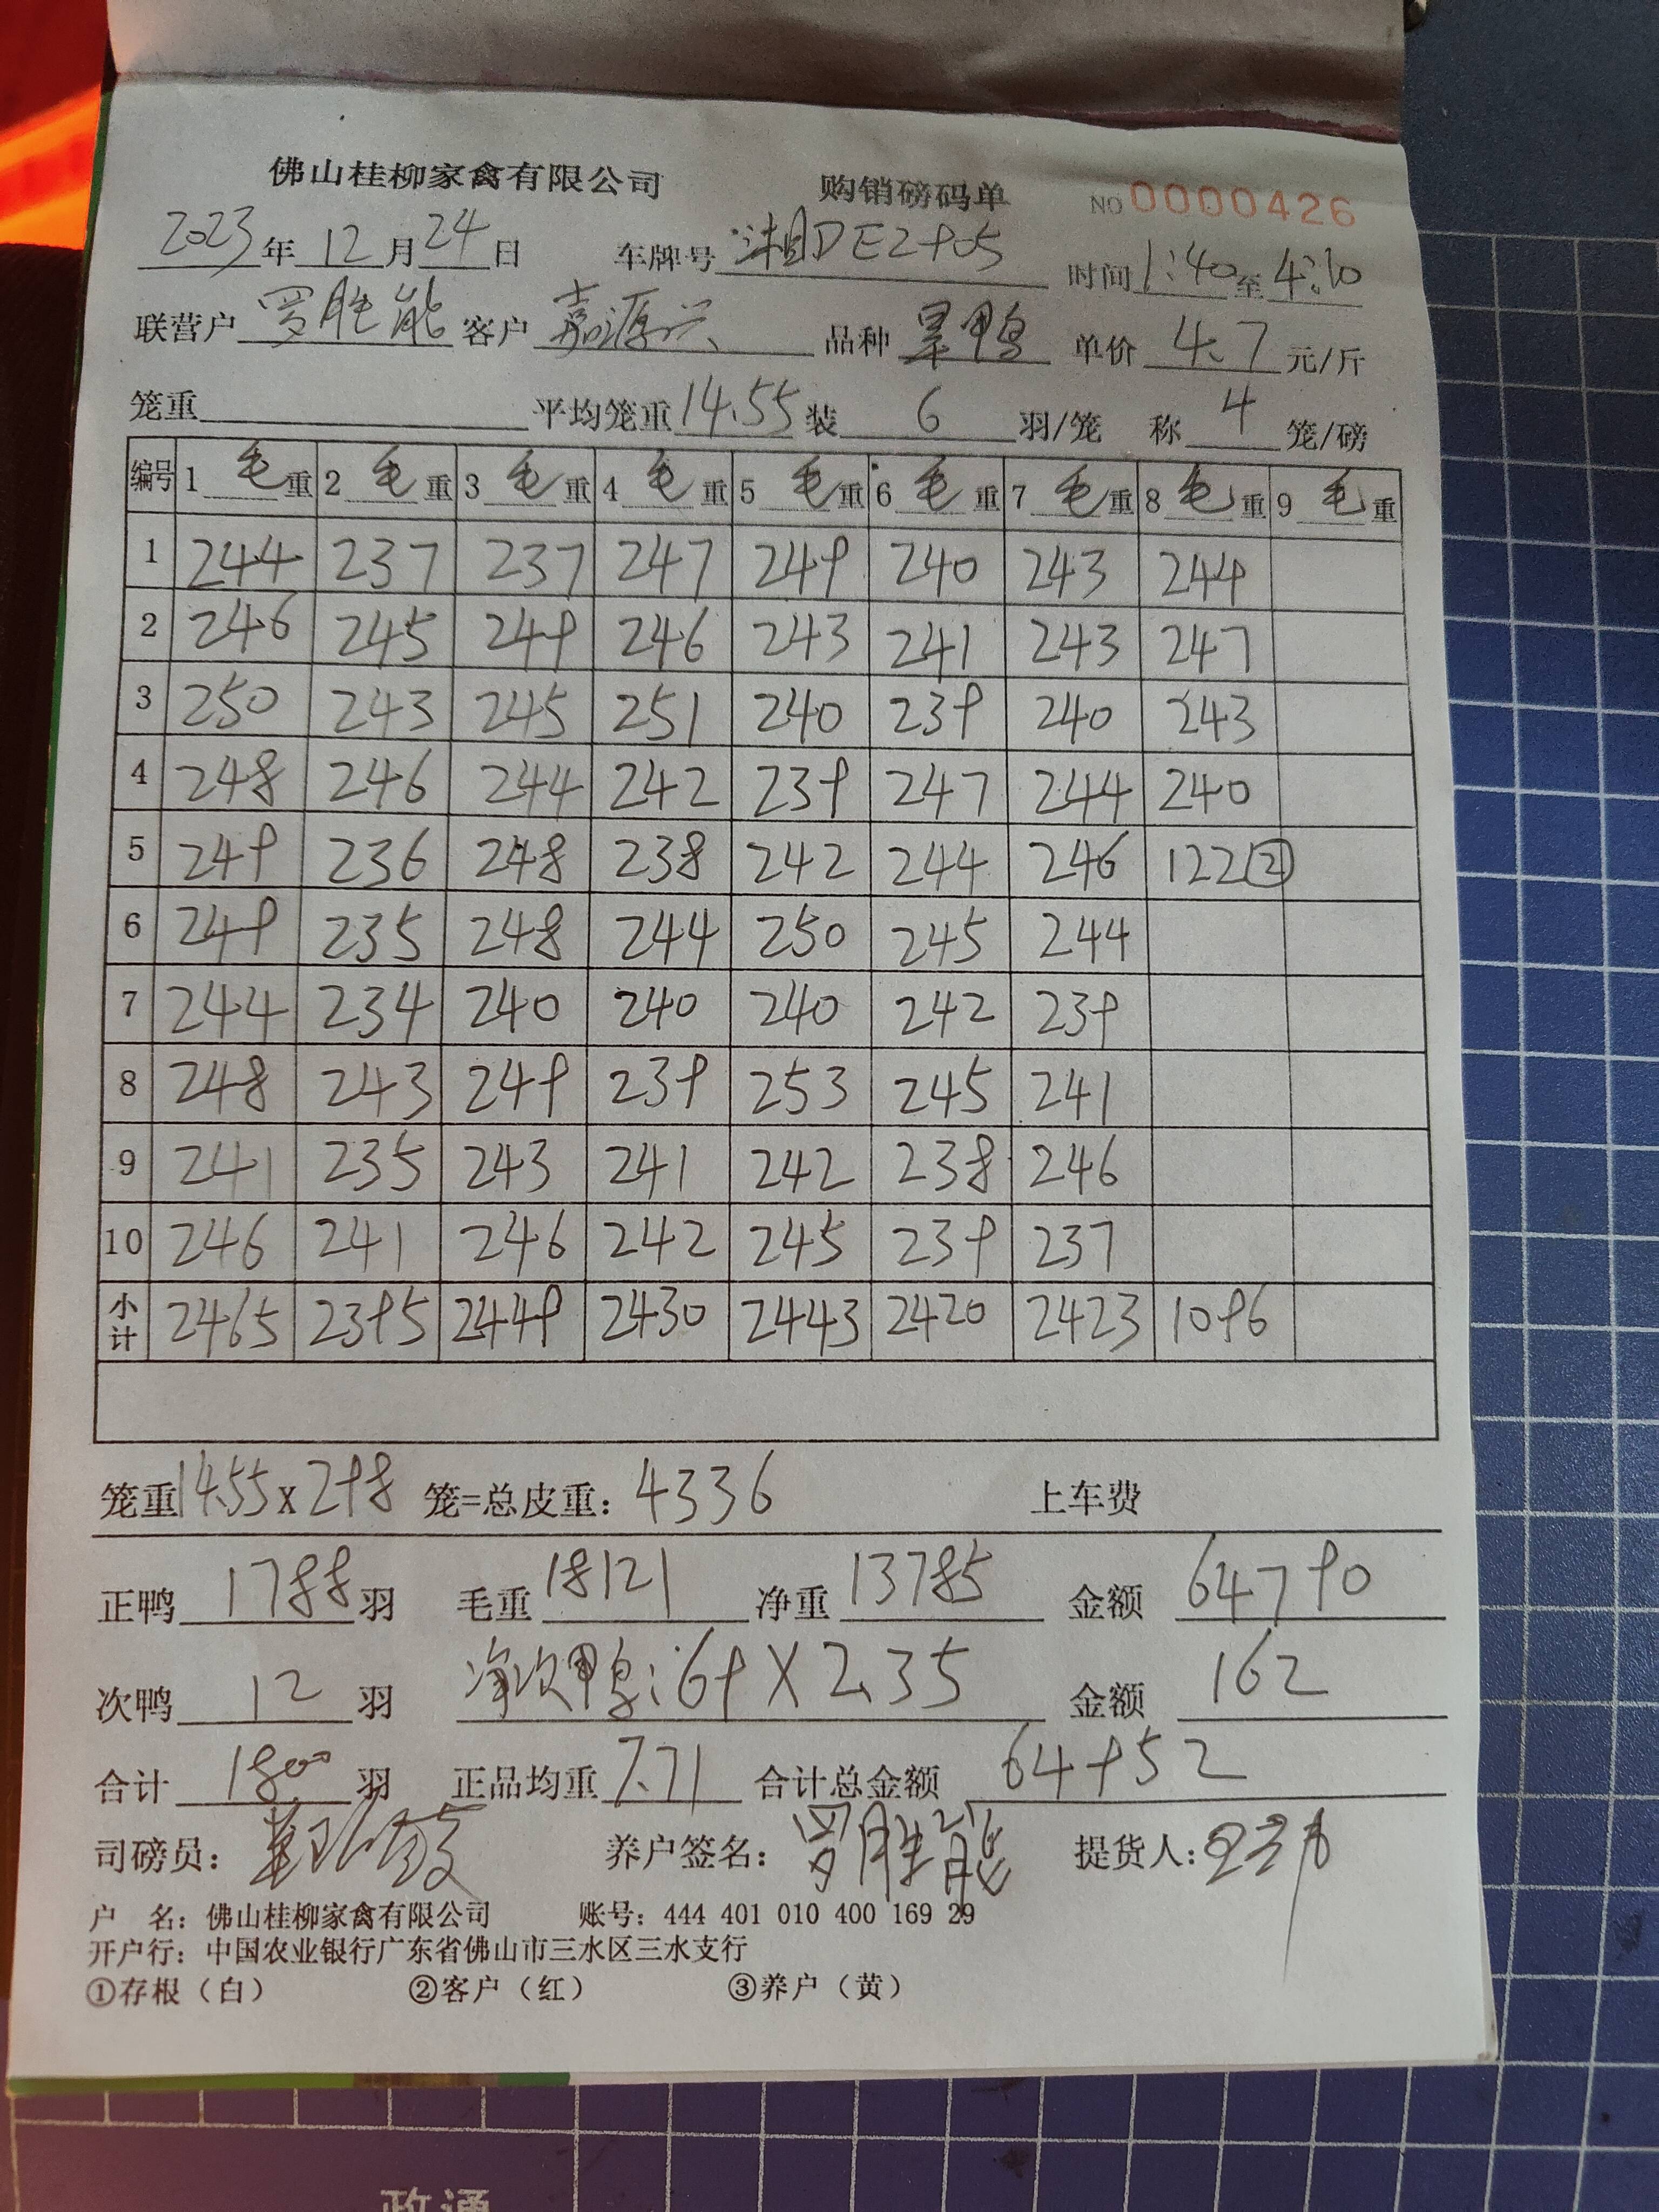 佛山桂柳家禽有限公司 购销磅码单 NO 0000426
2023年12月24日 车牌号 湘DE2905 时间 1:40 至 4:10
联营户 罗胜能 客户 嘉源兴 品种 旱鸭 单价 4.7 元/斤
笼重 平均笼重 14.55 装 6 羽/笼 称 4 笼/磅
编号 1 毛重 2 毛重 3 毛重 4 毛重 5 毛重 6 毛重 7 毛重 8 毛重 9 毛重
1 244 237 237 247 249 240 243 244
2 246 245 249 246 243 241 243 247
3 250 243 245 251 240 239 240 243
4 248 246 244 242 239 247 244 240
5 249 236 248 238 242 244 246 122②
6 249 235 248 244 250 245 244
7 244 234 240 240 240 242 239
8 248 243 249 239 253 245 241
9 241 235 243 241 242 238 246
10 246 241 246 242 245 239 237
小计 2465 2395 2449 2430 2443 2420 2423 1096
笼重14.55x298 笼=总皮重：4336 上车费
正鸭 1788 羽 毛重 18121 净重 13785 金额 64790
次鸭 12 羽 净次鸭：69X2.35 金额 162
合计 1800 羽 正品均重 7.71 合计总金额 64952
司磅员： 养户签名：罗胜能 提货人：
户 名：佛山桂柳家禽有限公司 账号：444 401 010 400 169 29
开户行：中国农业银行广东省佛山市三水区三水支行
①存根（白） ②客户（红） ③养户（黄）
政通